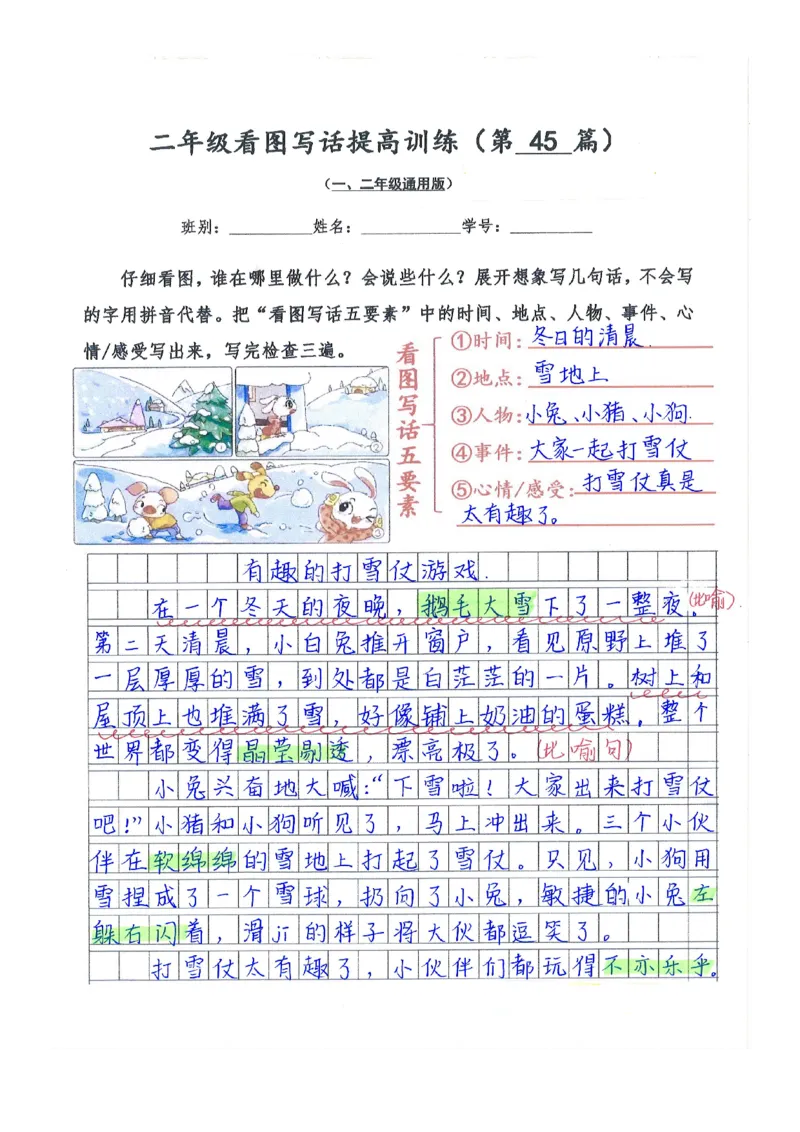 二年级看图写话提高训练（第 45 篇）
（一、二年级通用版）
班别：__________姓名：____________学号：__________
仔细看图，谁在哪里做什么？会说些什么？展开想象写几句话，不会写
的字用拼音代替。把“看图写话五要素”中的时间、地点、人物、事件、心
情/感受写出来，写完检查三遍。
看图写话五要素
①时间：冬日的清晨.
②地点：雪地上
③人物：小兔、小猪、小狗.
④事件：大家一起打雪仗
⑤心情/感受：打雪仗真是
太有趣了。
①
②
③
有趣的打雪仗游戏.
在一个冬天的夜晚，鹅毛大雪下了一整夜。(比喻)
第二天清晨，小白兔推开窗户，看见原野上堆了
一层厚厚的雪，到处都是白茫茫的一片。树上和
屋顶上也堆满了雪，好像铺上奶油的蛋糕。整个
世界都变得晶莹剔透，漂亮极了。(比喻句)
小兔兴奋地大喊：“下雪啦！大家出来打雪仗
吧！”小猪和小狗听见了，马上冲出来。三个小伙
伴在软绵绵的雪地上打起了雪仗。只见，小狗用
雪捏成了一个雪球，扔向了小兔，敏捷的小兔左
躲右闪着，滑jī的样子将大伙都逗笑了。
打雪仗太有趣了，小伙伴们都玩得不亦乐乎。